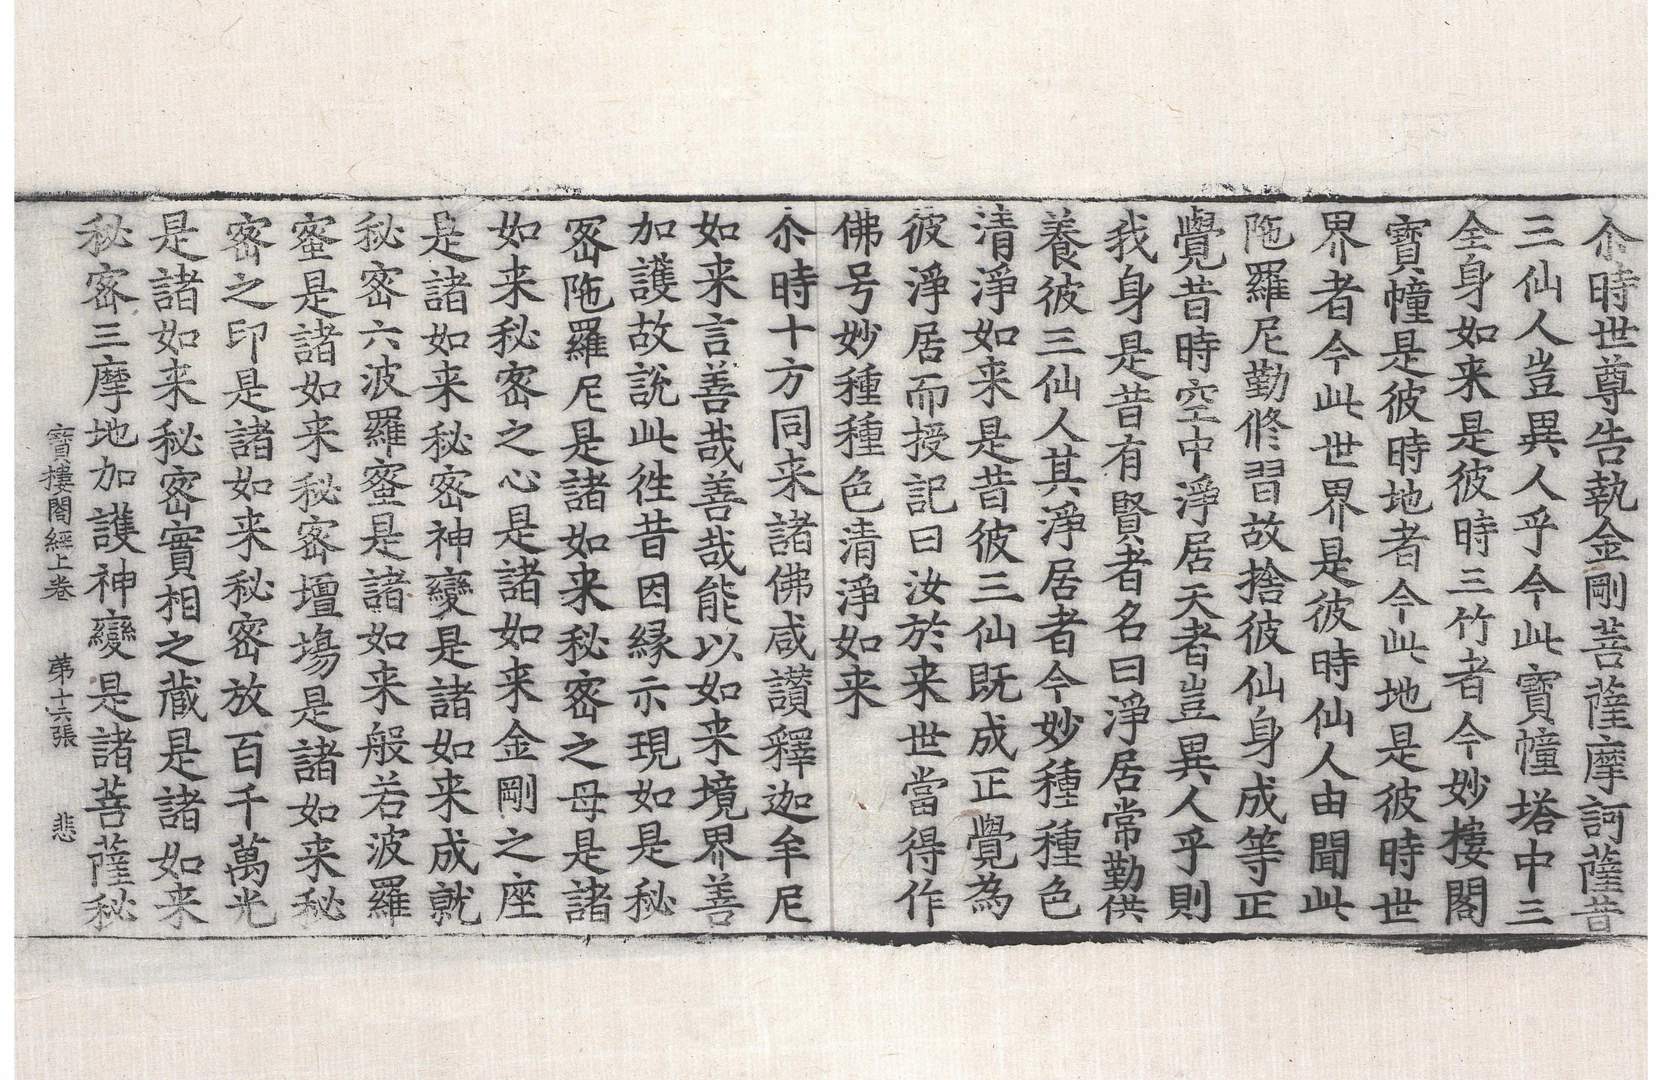 尒時世尊告執金剛菩薩摩訶薩昔
三仙人豈異人乎今此寶幢塔中三
全身如来是彼時三竹者今妙樓閣
寶幢是彼時地者今此地是彼時世
界者今此世界是彼時仙人由聞此
陁羅尼勤修習故捨彼仙身成等正
覺昔時空中淨居天者豈異人乎則
我身是昔有賢者名曰淨居常勤供
養彼三仙人其淨居者今妙種種色
清淨如来是昔彼三仙既成正覺為
彼淨居而授記曰汝於来世當得作
佛号妙種種色清淨如来
尒時十方同来諸佛咸讃釋迦牟尼
如来言善哉善哉能以如来境界善
加護故說此徃昔因縁示現如是秘
密陁羅尼是諸如来秘密之母是諸
如来秘密之心是諸如来金剛之座
是諸如来秘密神變是諸如来成就
秘密六波羅蜜是諸如来般若波羅
蜜是諸如来秘密壇場是諸如来秘
密之印是諸如来秘密放百千萬光
是諸如来秘密實相之藏是諸如来
秘密三摩地加護神變是諸菩薩秘
寶樓閣經上卷　第十六張　悲